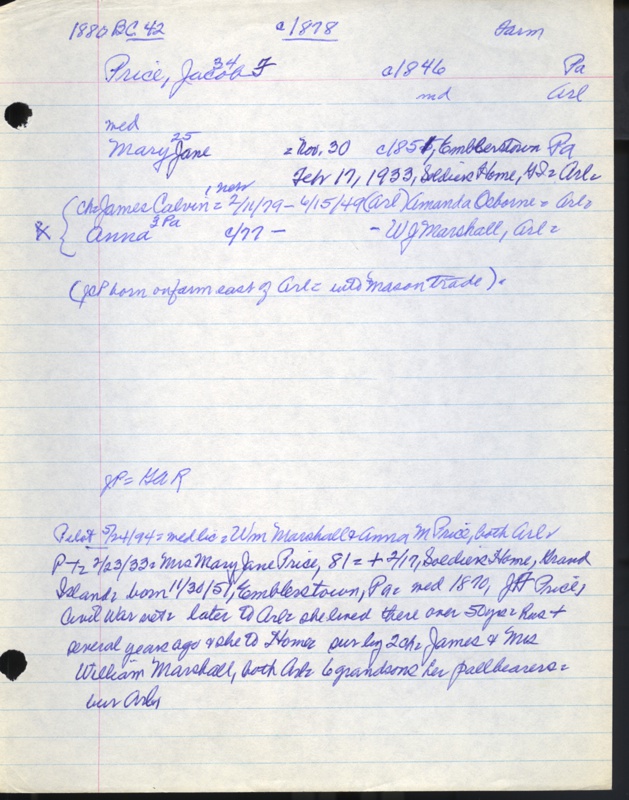 1880 BC 42 c/1878 Farm
Price, Jacob F 34 c/846 Pa
md Arl
med
Mary Jane 25 = Nov. 30 c/851, Emblerstown Pa
Feb 17, 1933, Soldiers Home, GI = Arl=
ch=James Calvin 1 new = 2/11/79 - 4/15/49 (Arl) Amanda Osborne = Arl=
x Anna 3 Pa c/77 - - W J Marshall, Arl=
(JCP born on farm east of Arl = into Mason trade).
JP = GAR
Pilot 5/24/94 = med lic = Wm Marshall & Anna M Price, both Arl=
P-1= 2/23/33 = Mrs Mary Jane Price, 81 = + 2/17, Soldiers Home, Grand
Island = born 11/30/51, Emblerstown, Pa = med 1870, J Price,
Civil War vet = later to Arl = she lived there over 50 yrs = Hus +
several years ago & she to Home = sur by 2 ch = James & Mrs
William Marshall, both Arl = 6 grandsons her pallbearers =
bur Arl